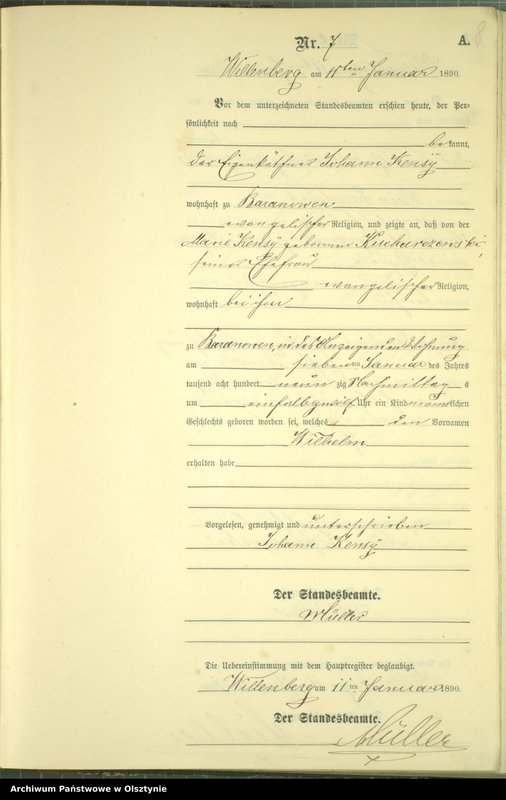 Nr. 7
A. 8
Willenberg am 11ten Januar 1890.
Vor dem unterzeichneten Standesbeamten erschien heute, der Per-
sönlichkeit nach
bekannt,
der Eigenkäthner Johann Kensy
wohnhaft zu Baranowen
evangelischer Religion, und zeigte an, daß von der
Marie Kensy geborenen Kucharzewski,
seiner Ehefrau
evangelischer Religion,
wohnhaft bei ihm
zu Baranowen, in des Anzeigenden Wohnung
am siebenten Januar des Jahres
tausend acht hundert neunzig Nachmittags
um ein halb zwölf Uhr ein Kind männlichen
Geschlechts geboren worden sei, welches den Vornamen
Wilhelm
erhalten habe
Vorgelesen, genehmigt und unterschrieben
Johann Kensy
Der Standesbeamte.
Müller
Die Uebereinstimmung mit dem Hauptregister beglaubigt.
Willenberg am 11ten Januar 1890.
Der Standesbeamte.
Müller
Archiwum Państwowe w Olsztynie